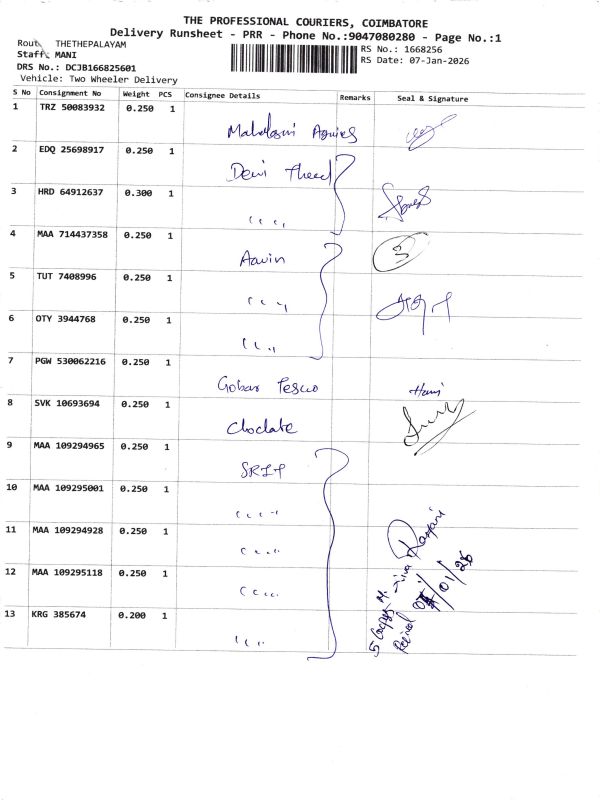 THE PROFESSIONAL COURIERS, COIMBATORE
Delivery Runsheet - PRR - Phone No.:9047080280 - Page No.:1
Route THETHEPALAYAM
RS No.: 1668256
Staff: MANI
RS Date: 07-Jan-2026
DRS No.: DCJB166825601
Vehicle: Two Wheeler Delivery
S No Consignment No Weight PCS Consignee Details Remarks Seal & Signature
1 TRZ 50083932 0.250 1
2 EDQ 25698917 0.250 1 Devi
3 HRD 64912637 0.300 1 " "
4 MAA 714437358 0.250 1 Aavin
5 TUT 7408996 0.250 1 " "
6 OTY 3944768 0.250 1 " "
7 PGW 530062216 0.250 1 Gobar Hari
8 SVK 10693694 0.250 1 Choclate
9 MAA 109294965 0.250 1
10 MAA 109295001 0.250 1 " "
11 MAA 109294928 0.250 1 " "
12 MAA 109295118 0.250 1 " "
13 KRG 385674 0.200 1 " "